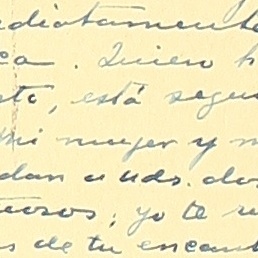 ediatamente
ca. Quien h
está segu
mi mujer y m
dan a uds. dos
tuosos; yo te re
s de tu encant